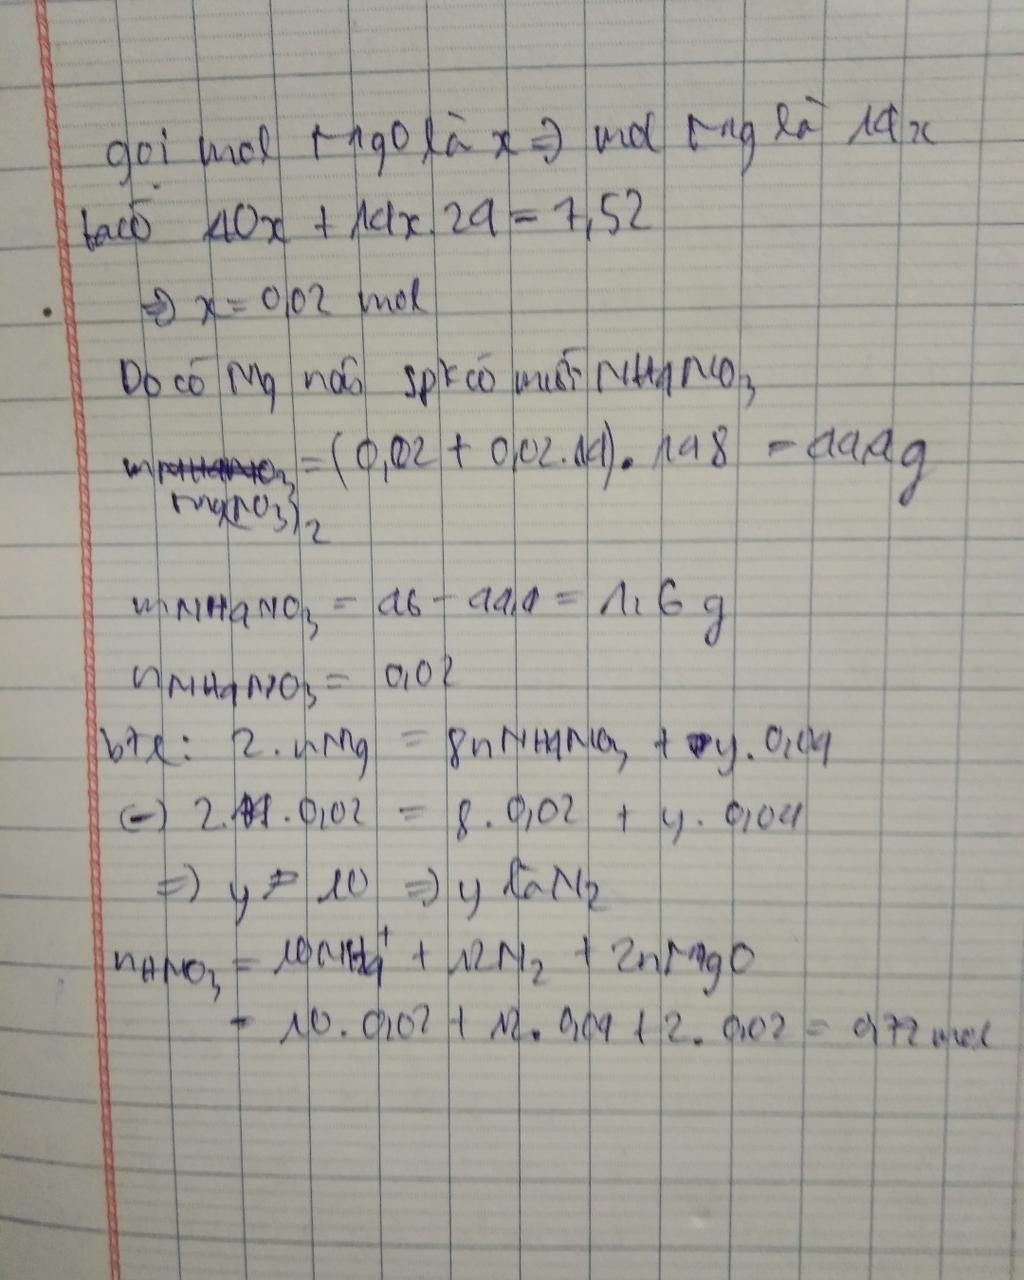 gọi mol MgO là x => mol Mg là 14x
ta có 40x + 14x.24 = 7,52
=> x = 0,02 mol
Do có Mg nên spk có muối NH4NO3
mMg(NO3)2 = (0,02 + 0,02.14).148 = 44,4g
mNH4NO3 = 46 - 44,4 = 1,6 g
nNH4NO3 = 0,02
bte: 2.nMg = 8nNH4NO3 + y.0,04
(-) 2.14.0,02 = 8.0,02 + y.0,04
=> y = 10 => y là N2
nHNO3 = 10NH4+ + 12N2 + 2nMgO
= 10.0,02 + 12.0,04 + 2.0,02 = 0,72 mol